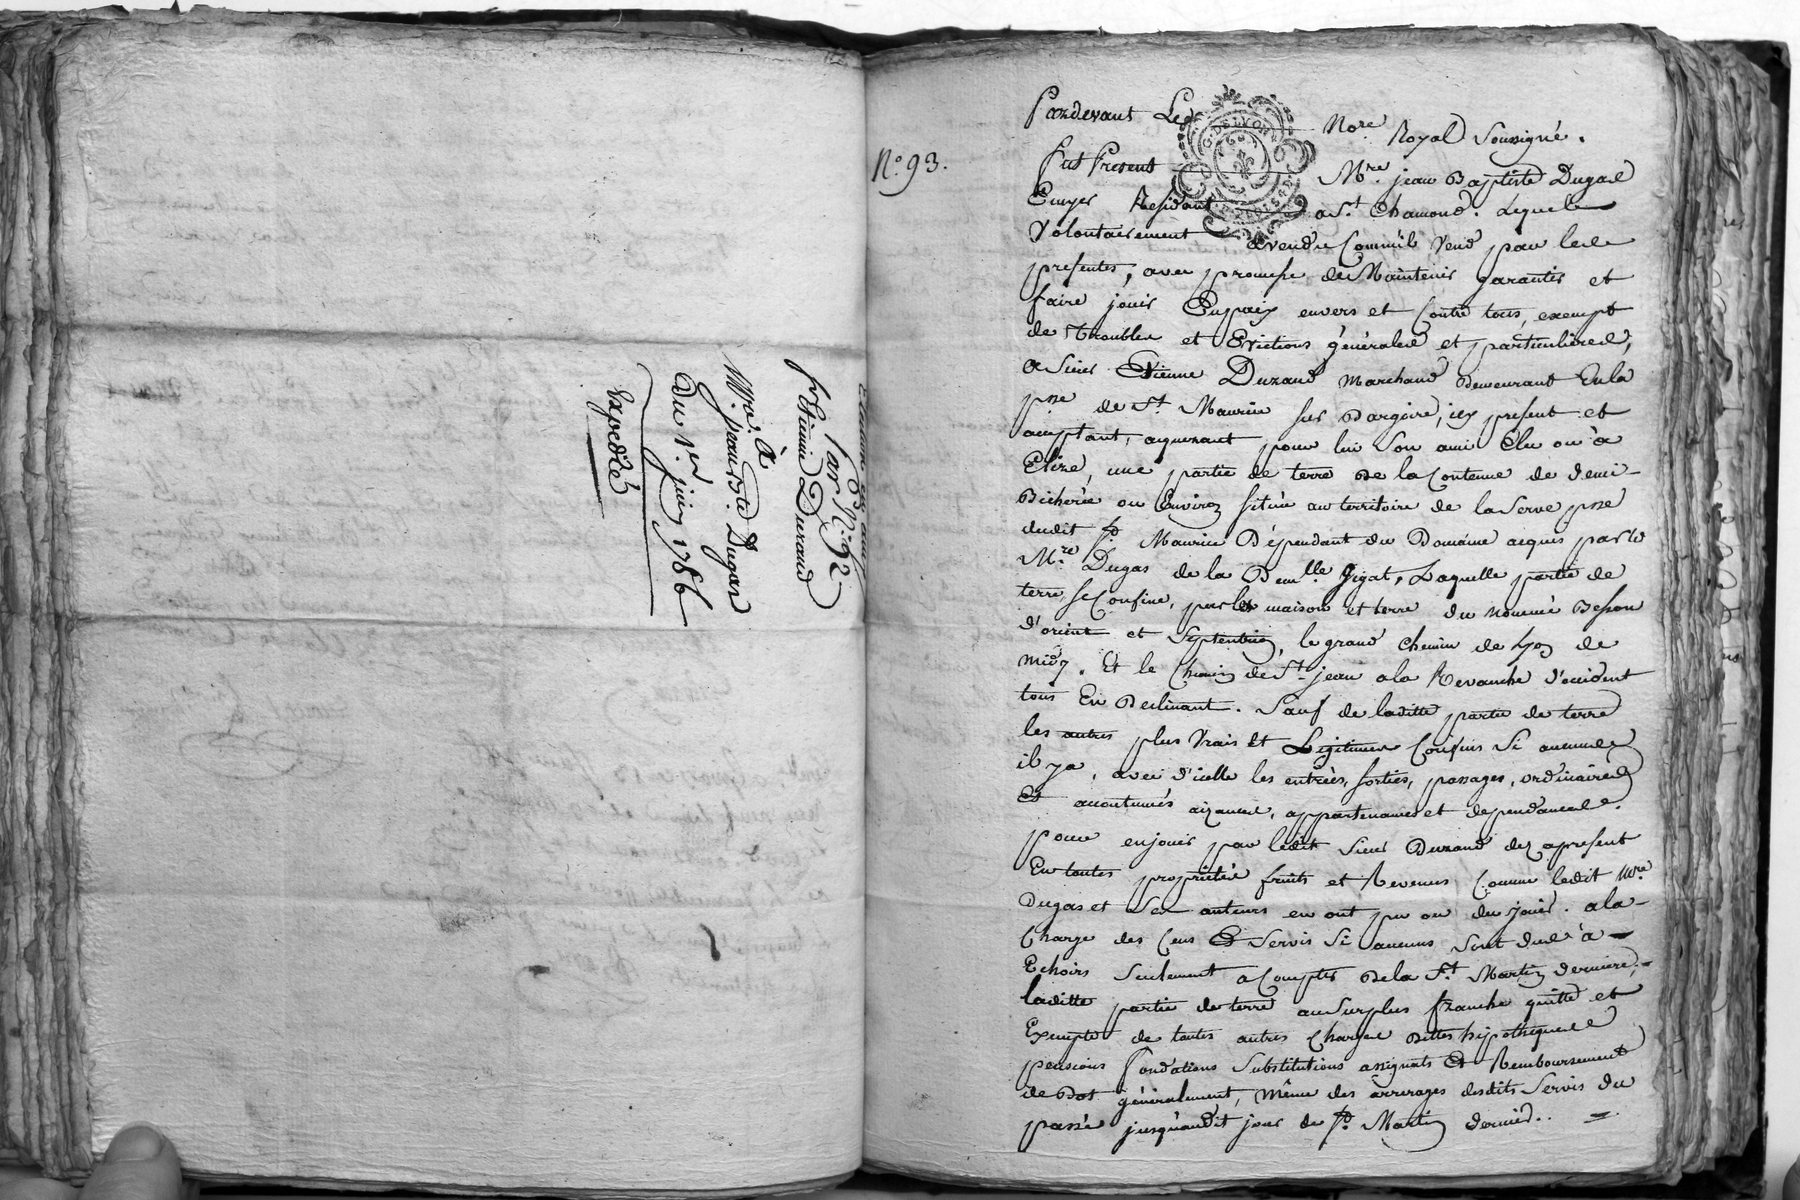 Par Sr
Etienne Durand
à
Mre. jean Bte. Dugas
Du 1er. juin 1786
Expedié
N°. 93.
G. DE LYON
Pardevant Le Nore Royal Soussigné.
fut Present Mre. jean Baptiste Dugas
Ecuyer Residant a St. Chamond. Lequel
Volontairement a vendu Comm'il Vend par les
presentes, avec promesse de Maintenir garantir et
faire jouir En paix envers et Contre tous, exempt
de troubles et Evictions générales et particulieres,
a Sieur Etienne Durand Marchand Demeurant En la
psse de St. Maurice sur Dargoire, icy present et
acceptant, acquerant pour lui Son ami Elu ou à
Elire, une partie de terre De la Contenue de demi-
Bicherée ou Environ située au territoire de la Serve psse
dudit St. Maurice Dépendant du Domaine acquis par le
Mre. Dugas de la Demlle Gigat, Laquelle partie de
terre se Confine, par les maison et terre du nommé Besson
d'orient et Septentrion, le grand Chemin de Lyon de
midy. Et le Chemin de St. jean a la Revanche d'occident
tous En Declinant. Sauf de laditte partie de terre
les autres plus Vrais Et Legitimes Confins Si aucuns
il y a, avec d'icelle les entrées, sorties, passages, ordinaires
Et accoutumés aizances, appartenances et dependances.
pour en jouir par ledit Sieur Durand dez apresent
En toutes proprietés fruits et Revenus Comme ledit Mre
Dugas et Ses auteurs en ont pu ou du jouir. a la
Charge des Cens Et Servis Si aucuns Sont dus à
Echoir Seulement a Compter De la St. Martin derniere,
laditte partie de terre au Surplus franche quitte et
Exempte de toutes autres Charges Dettes hipotheques
pensions fondations Substitutions assignats Et Remboursement
de Dot généralement, Même des arrerages desdits Servis du
passé jusqu'audit jour de St. Martin dernier.